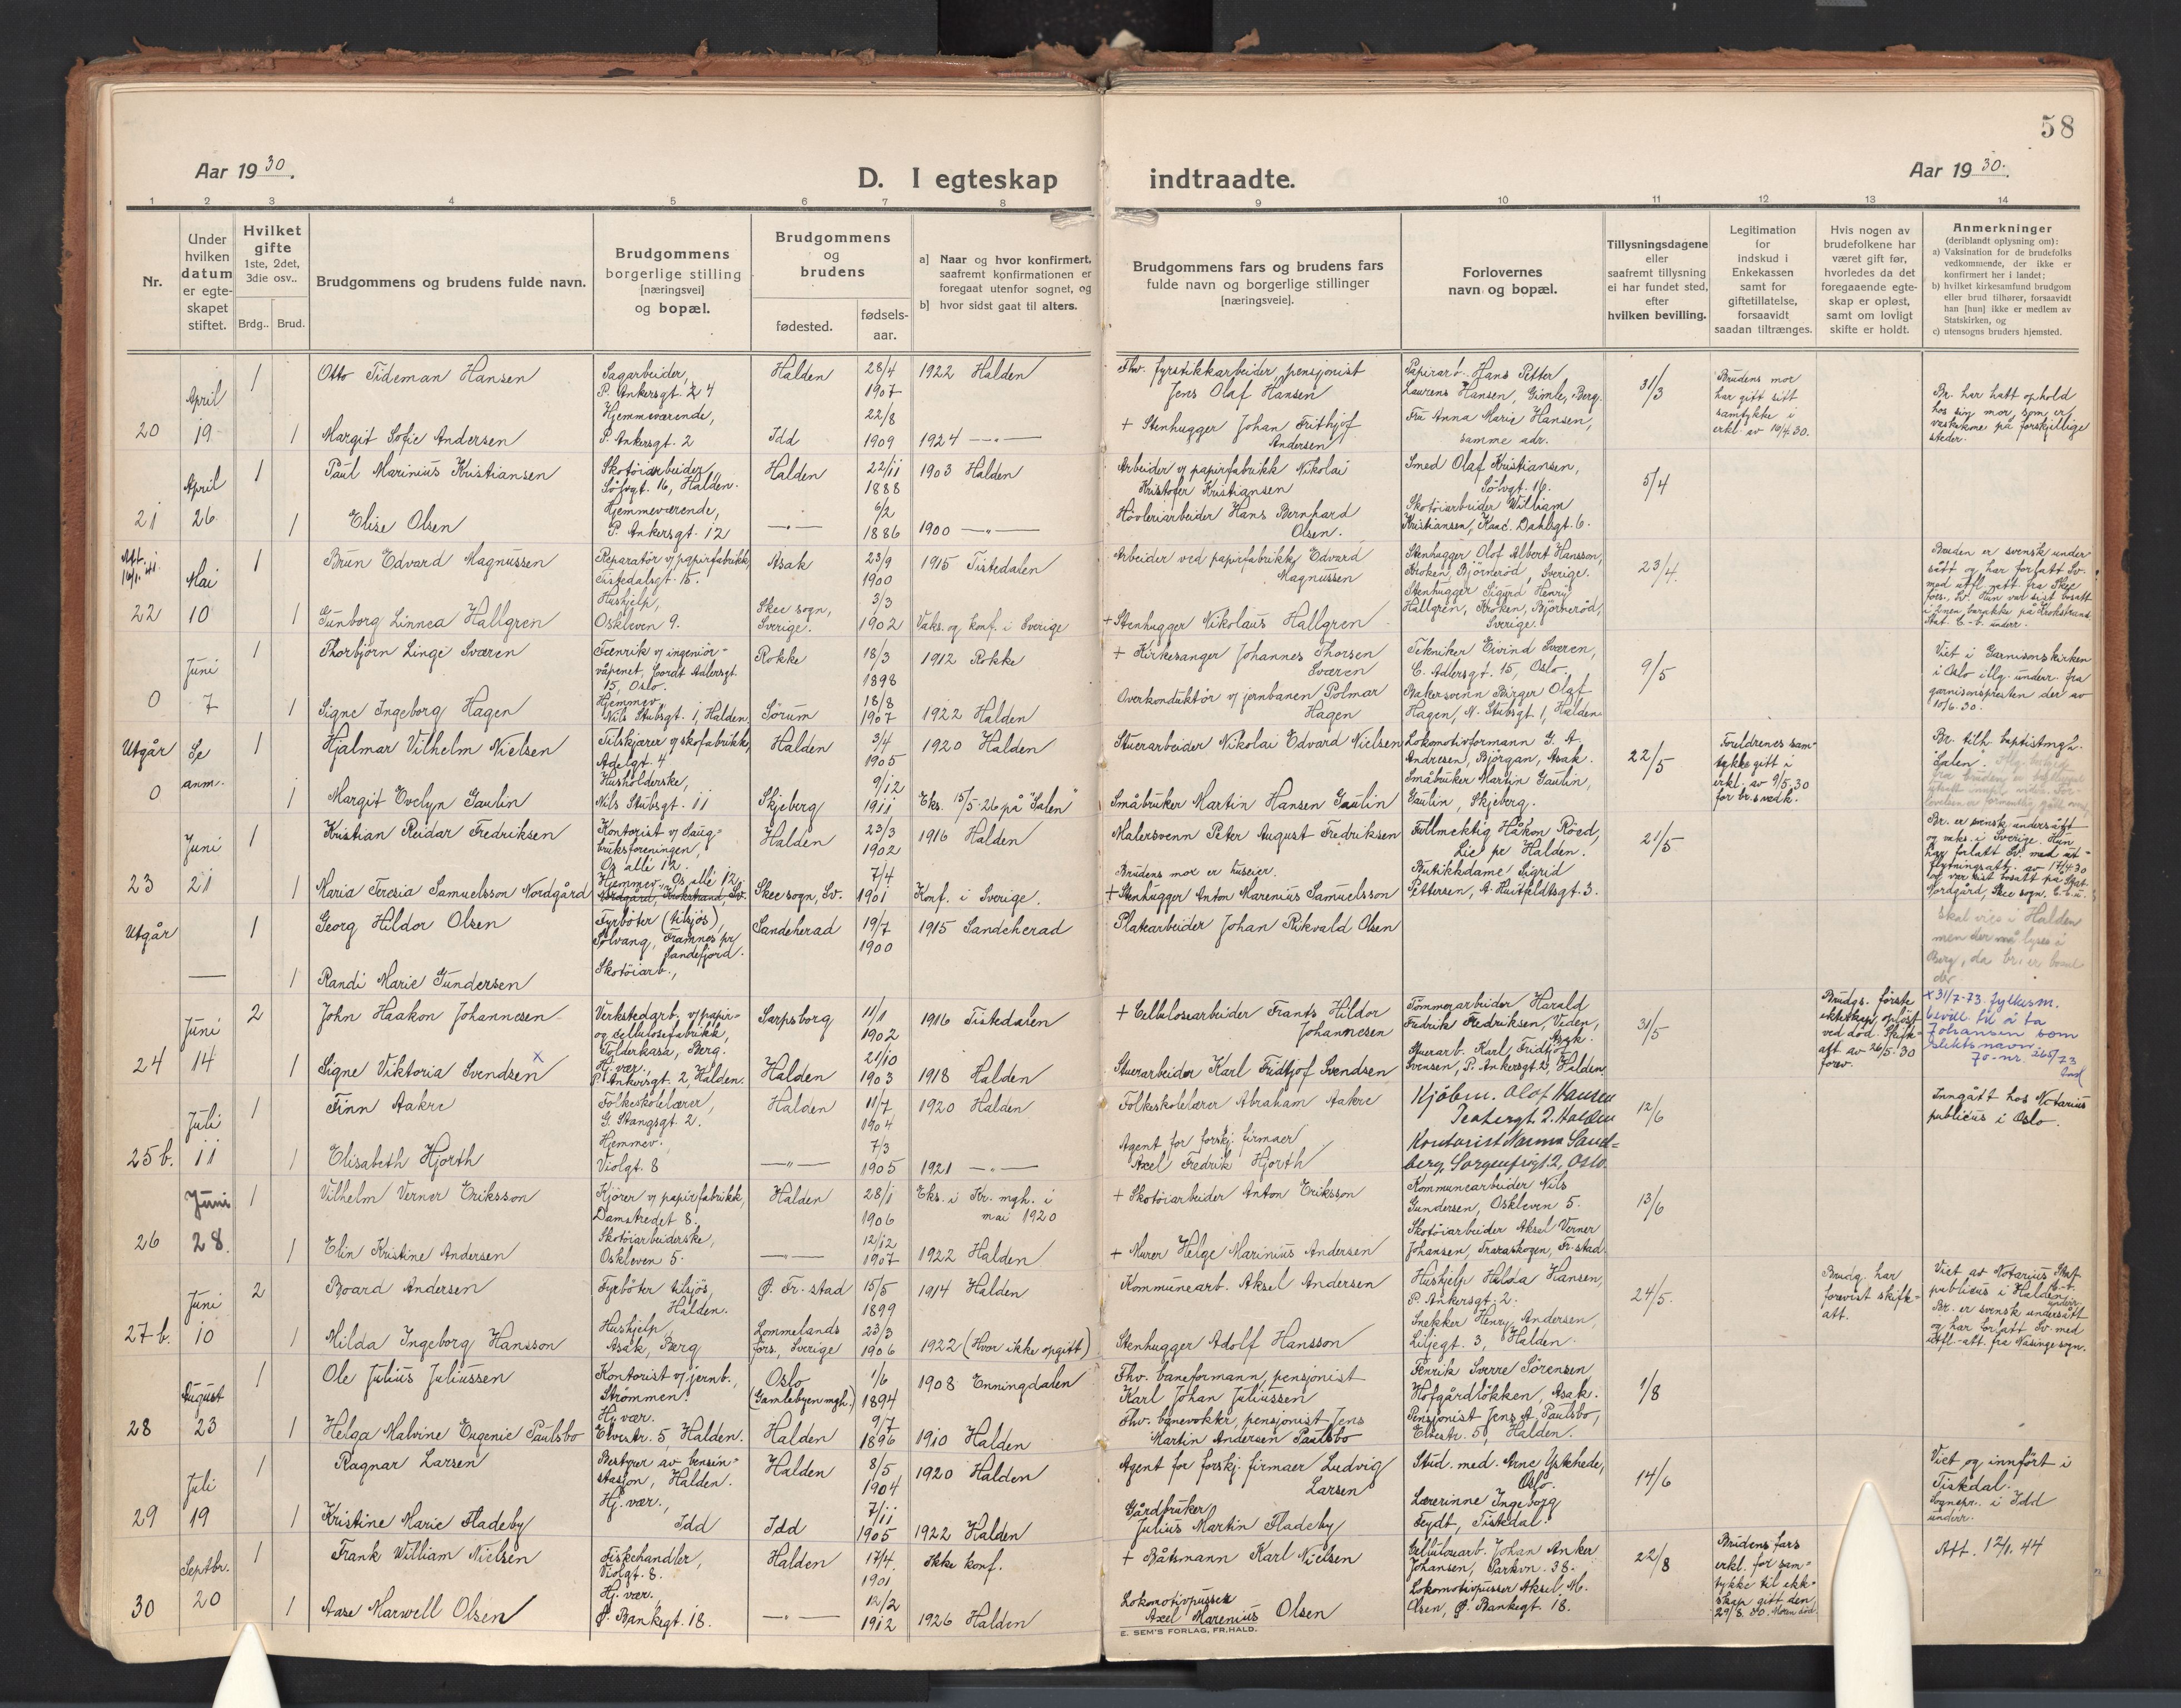 58
Aar 1930.
D. I egteskap indtraadte.
Aar 1930.
1 2 3 4 5 6 7 8 9 10 11 12 13 14
Nr.
Under hvilken datum er egte-skapet stiftet.
Hvilket gifte
1ste, 2det, 3die osv..
Brdg.. Brud.
Brudgommens og brudens fulde navn.
Brudgommens borgerlige stilling [næringsvei] og bopæl.
Brudgommens og brudens
fødested.
fødsels-aar.
a] Naar og hvor konfirmert, saafremt konfirmationen er foregaat utenfor sognet, og
b] hvor sidst gaat til alters.
Brudgommens fars og brudens fars fulde navn og borgerlige stillinger [næringsveie].
Forlovernes navn og bopæl.
Tillysningsdagene eller saafremt tillysning ei har fundet sted, efter hvilken bevilling.
Legitimation for indskud i Enkekassen samt for giftetillatelse, forsaavidt saadan tiltrænges.
Hvis nogen av brudefolkene har været gift før, hvorledes da det foregaaende egte-skap er opløst, samt om lovligt skifte er holdt.
Anmerkninger
(deriblandt oplysning om):
a) Vaksination for de brudefolks vedkommende, der ikke er konfirmert her i landet;
b) hvilket kirkesamfund brudgom eller brud tilhører, forsaavidt han [hun] ikke er medlem av Statskirken, og
c) utensogns bruders hjemsted.
20 April 19
1 Otto Tideman Hansen
Sagarbeider, P. Ankersgt. 24
Halden 28/4 1907 1922 Halden
Fhv. fyrstikkarbeider, pensjonist Jens Olaf Hansen
Papirarb. Hans Petter Laurens Hansen, Gimle, Berg.
31/3
Brudens mor har gitt sitt samtykke i erkl. av 10/4 30.
Br. har hatt ophold hos sin mor, som er vaskekone på forskjellige steder.
1 Margit Sofie Andersen
Hjemmeværende, P. Ankersgt. 2
Idd 22/8 1909 1924 —"—
+ Stenhugger Johan Frithjof Andersen
Fru Anna Marie Hansen, samme adr.
21 April 26
1 Paul Marinius Kristiansen
Skotøiarbeider, Sølvgt. 16, Halden.
Halden 22/11 1888 1903 Halden
Arbeider v/ papirfabrikk Nikolai Kristofer Kristiansen
Smed Olaf Kristiansen, Sølvgt. 16.
5/4
1 Elise Olsen
Hjemmeværende, P. Ankersgt. 12
—"— 6/2 1886 1900 —"—
Høvleriarbeider Hans Bernhard Olsen.
Skotøiarbeider William Kristiansen, Kanc. Dahlsgt. 6.
Att. 16/1. 41.
22 Mai 10
1 Brun Edvard Magnussen
Reparatør v/ papirfabrikk, Tistedalsgt. 15.
Asak 23/9 1900 1915 Tistedalen
Arbeider ved papirfabrikk Edvard Magnussen
Stenhugger Olof Albert Hansson, Kroken, Björneröd, Sverige.
23/4.
Bruden er svensk under-sått og har forlatt Sv. med utfl. att fra Skee
1 Gunborg Linnea Hallgren
Hushjelp, Oskleven 9.
Skee sogn, Sverige. 3/3 1902 Vaks. og konf. i Sverige
+ Stenhugger Nikolaus Hallgren
Stenhugger Sigurd Henry Hallgren, Kroken, Björneröd, Sverige.
0 Juni 7
1 Thorbjørn Linge Sværen
Fenrik v/ ingeniør-våpenet, Cordt Adelersgt. 15, Oslo.
Rokke 18/3 1898 1912 Rokke
+ Kirkesanger Johannes Thorsen Sværen
Tekniker Eivind Sværen, C. Adlersgt. 15, Oslo.
9/5
Viet i Garnisonskirken i Oslo iflg. underr. fra garnisonspresten der av 10/6. 30.
1 Signe Ingeborg Hagen
Hjemmev. Nils Stubsgt. 1, Halden
Sørum 18/8 1907 1922 Halden
Overkonduktør v/ jernbanen Polmar Hagen
Bakersvenn Birger Olaf Hagen, N. Stubsgt 1, Halden
Utgår 0 Se anm.
1 Hjalmar Vilhelm Nielsen
Tilskjærer v/ skofabrikk, Adelgt. 4
Halden 3/4 1905 1920 Halden
Stuerarbeider Nikolai Edvard Nielsen
Lokomotivformann G. A. Andresen, Bjørgan, Asak.
22/5
Foreldrenes sam-tykke gitt i erkl. av 9/5. 30 for br.s vedk.
Br. tilh. baptistmgh. "Salen".
1 Margit Evelyn Gaulin
Husholderske, Nils Stubsgt. 11
Skjeberg 9/12 1911 Eks. 15/5-26 på "Salen"
Småbruker Martin Hansen Gaulin
Småbruker Martin Gaulin, Gaulin, Skjeberg.
23 Juni 21
1 Kristian Reidar Fredriksen
Kontorist v/ Saug-bruksforeningen, Os allé 12.
Halden 23/3 1902 1916 Halden
Malersvenn Peter August Fredriksen
Fullmektig Håkon Röed, Lie pr Halden.
21/5
Br. er svensk undersått og vaks. i Sverige. Hun har forlatt Sv. med ut-flytningsatt. av 17/4 30 og var sist bosatt på Stat. Nordgård, Skee sogn.
1 Maria Teresia Samuelsson Nordgård
Hjemmev. Os. allé 12.
Skee sogn, Sv. 7/4 1901 Konf. i Sverige.
Brudens mor er huseier.
+ Stenhugger Anton Marenius Samuelsson
Butikkdame Sigrid Pettersen, A. Huitfeldtsgt. 3.
Utgår —
1 Georg Hildor Olsen
Fyrbøter (tilsjøs), Solvang, Framnes pr Sandefjord.
Sandeherad 19/7 1900 1915 Sandeherad
Platearbeider Johan Rikvald Olsen
Skal vies i Halden men der må lyses i Berg, da br. er bosatt der
1 Randi Marie Gundersen
Skotøiarb.,
24 Juni 14
2 John Haakon Johannesen
Verkstedarb. v/ papir- og cellulosefabrikk, Folderkasa, Berg.
Sarpsborg 11/1 1902 1916 Tistedalen
+ Cellulosearbeider Frants Hildor Johannesen
Tømmerarbeider Harald Fredrik Fredriksen, Veden, Asak.
31/5
Brudgs. første ekteskap opløst ved død. Skifte-att. av 26/5. 30 forev.
x 31/7-73. fylkesm. bevill. til å ta Johansen som slektsnavn. Jo-nr. 265/73
1 Signe Viktoria Svendsen x
Hj. vær., P. Ankersgt. 2, Halden.
Halden 21/10 1903 1918 Halden
Stuerarbeider Karl Fridtjof Svendsen
Stuerarb. Karl Fridtjof Svensen, P. Ankersgt 2, Halden
25 b. Juli 11
1 Finn Aakre
Folkeskolelærer, G. Stangsgt. 2.
Halden 11/7 1904 1920 Halden
Folkeskolelærer Abraham Aakre
Kjøbm. Olof Hansen Teatergt. 2. Halden
12/6
Inngått hos Notarius publicus i Oslo.
1 Elisabeth Hjorth
Hjemmev. Violgt. 8
—"— 7/3 1905 1921 —"—
Agent for forskj. firmaer Axel Fredrik Hjorth
Kontorist Nanna Sand-berg, Sorgenfrigt. 2, Oslo.
26 Juni 28.
1 Vilhelm Verner Eriksson
Kjører v/ papirfabrikk, Damstredet 8.
Halden 28/1 1906 Eks. i Kr. mgh. i mai 1920
+ Skotøiarbeider Anton Eriksson
Kommunearbeider Nils Gundersen, Oskleven 5.
13/6
1 Elin Kristine Andersen
Skotøiarbeiderske, Oskleven 5.
—"— 12/12 1907 1922 Halden
+ Murer Helge Marinius Andersen
Skotøiarbeider Aksel Verner Johansen, Traraskogen, Fr.stad.
27 b. Juni 10
2 Board Andersen
Fyrbøter tilsjøs, Halden.
Ø. Fr.stad 15/5 1899 1914 Halden
Kommunearb. Aksel Andersen
Hushjelp Hulda Hansen, P. Ankersgt. 2.
24/5.
Brudg. har forevist skifte-att.
Viet av Notarius publicus i Halden. Br. er svensk undersått og har forlatt Sv. med utfl.-att. fra Näsinge sogn.
1 Milda Ingeborg Hansson
Hushjelp, Asak, Berg
Lommelands fors., Sverige 23/3 1906 1922 (Hvor ikke opgitt)
Stenhugger Adolf Hansson
Snekker Henry Andersen, Liljegt. 3, Halden.
28 August 23
1 Ole Julius Juliussen
Kontorist v/ jernb., Strømmen.
Oslo (Gamlebyen mgh.) 1/6 1894 1908 Enningdalen
Fhv. baneformann, pensjonist Karl Johan Juliussen
Fenrik Sverre Sørensen, Hofgårdløkken, Asak.
1/8
1 Helga Malvine Eugenie Paulsbo
Hj. vær. Elvestr. 5, Halden.
Halden 9/7 1896 1910 Halden
Fhv. banevokter, pensjonist Jens Martin Andersen Paulsbo
Pensjonist Jens A. Paulsbo, Elvestr. 5, Halden.
29 Juli 19
1 Ragnar Larsen
Bestyrer av bensin-stasjon, Halden.
Halden 8/5 1904 1920 Halden
Agent for forskj. firmaer Ludvig Larsen
Stud. med. Arne Ystehede, Oslo.
14/6
Viet og innført i Tistedal. Sognepr. i Idd underr.
1 Kristine Marie Fladeby
Hj. vær., Idd
Idd 7/11 1905 1922 Halden
Gårdbruker Julius Martin Fladeby
Lærerinne Ingeborg Feydt, Tistedal.
30 Septbr. 20
1 Frank William Nielsen
Fiskehandler, Violgt. 8.
Halden 17/4. 1901 Ikke konf.
+ Båtsmann Karl Nielsen
Cellulosearb. Johan Anker Johansen, Parkvn. 38.
22/8
Brudens fars erkl. for sam-tykke til ekte-skap gitt den 29/8. 30. Moren død.
Att. 12/1. 44
1 Aase Marwell Olsen
Hj. vær. Ø. Bankegt. 18.
—"— 12/2 1912 1926 Halden
Lokomotivpusser Axel Marenius Olsen
Lokomotivpusser Aksel M. Olsen, Ø. Bankegt. 18.
E. SEM'S FORLAG, FR.HALD.